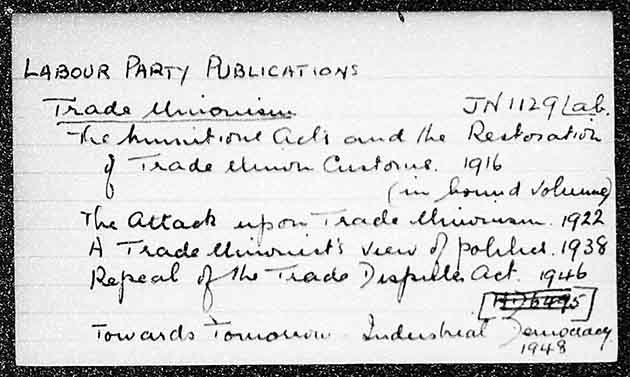 LABOUR PARTY PUBLICATIONS
Trade Unionism JN1129 Lab.
The Munitions Acts and the Restoration
of Trade Union Customs. 1916
(in bound volume)
The Attack upon Trade Unionism. 1922
A Trade Unionist's view of politics. 1938
Repeal of the Trade Disputes Act. 1946
[HD6495]
Towards Tomorrow Industrial Democracy
1948